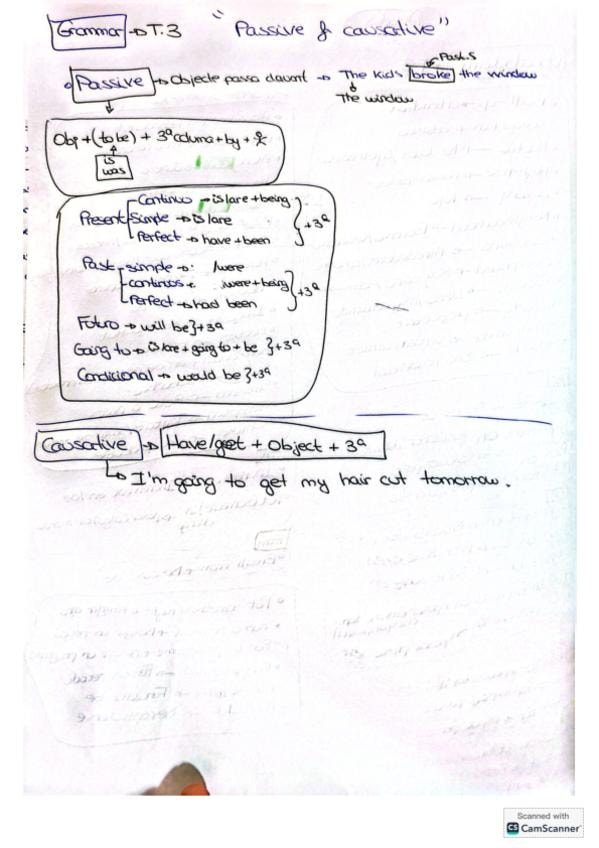 Grammar → T.3 "Passive & causative"
Past.S
• Passive → Objecte passa davant → The kids broke the window
The window
Obj + (to be) + 3ª columna + by +
is
was
Present Continuo → is/are + being
Simple → is/are
Perfect → have + been
} + 3ª
Past simple → /were
continuos /were + being
Perfect → had been
} + 3ª
Futuro → will be } + 3ª
Going to → is/are + going to + be } + 3ª
Condicional → would be } + 3ª
Causative → Have/get + Object + 3ª
↳ I'm going to get my hair cut tomorrow.
Scanned with
CS CamScanner